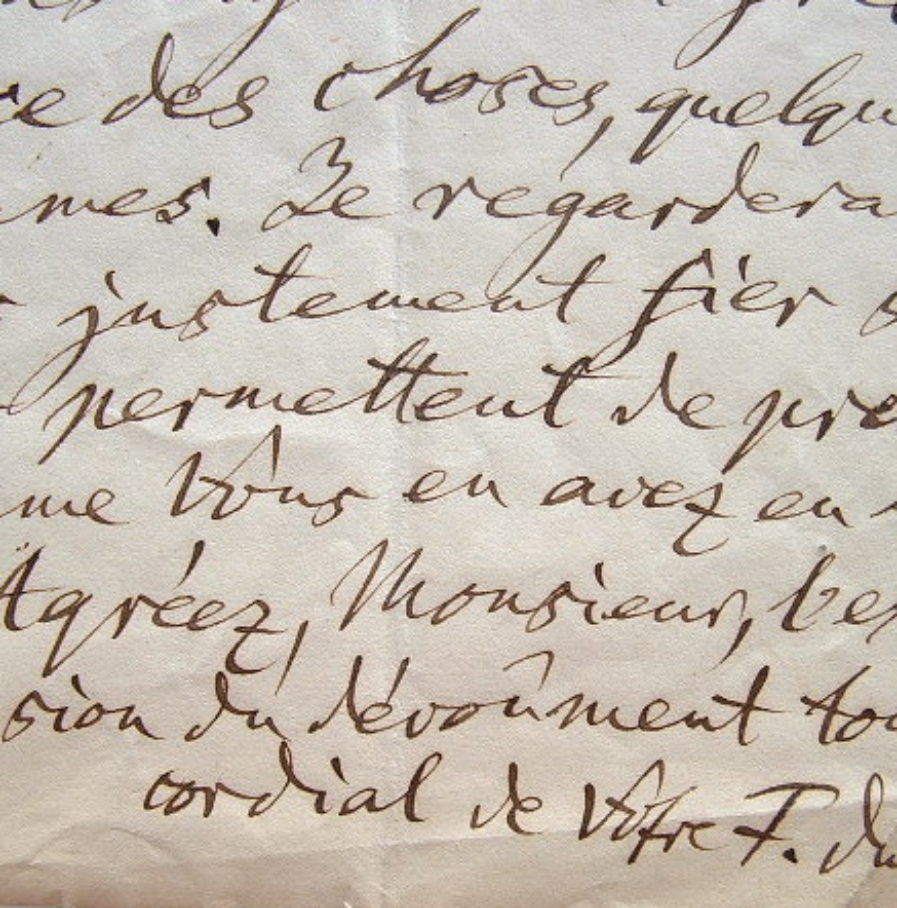 ce des choses, quelqu
mes. Je regardera
justement fier s
permettent de pre
me Vous en avez en
Agréez, Monsieur, l'ex
sion du dévoûment tou
cordial de Votre F. du